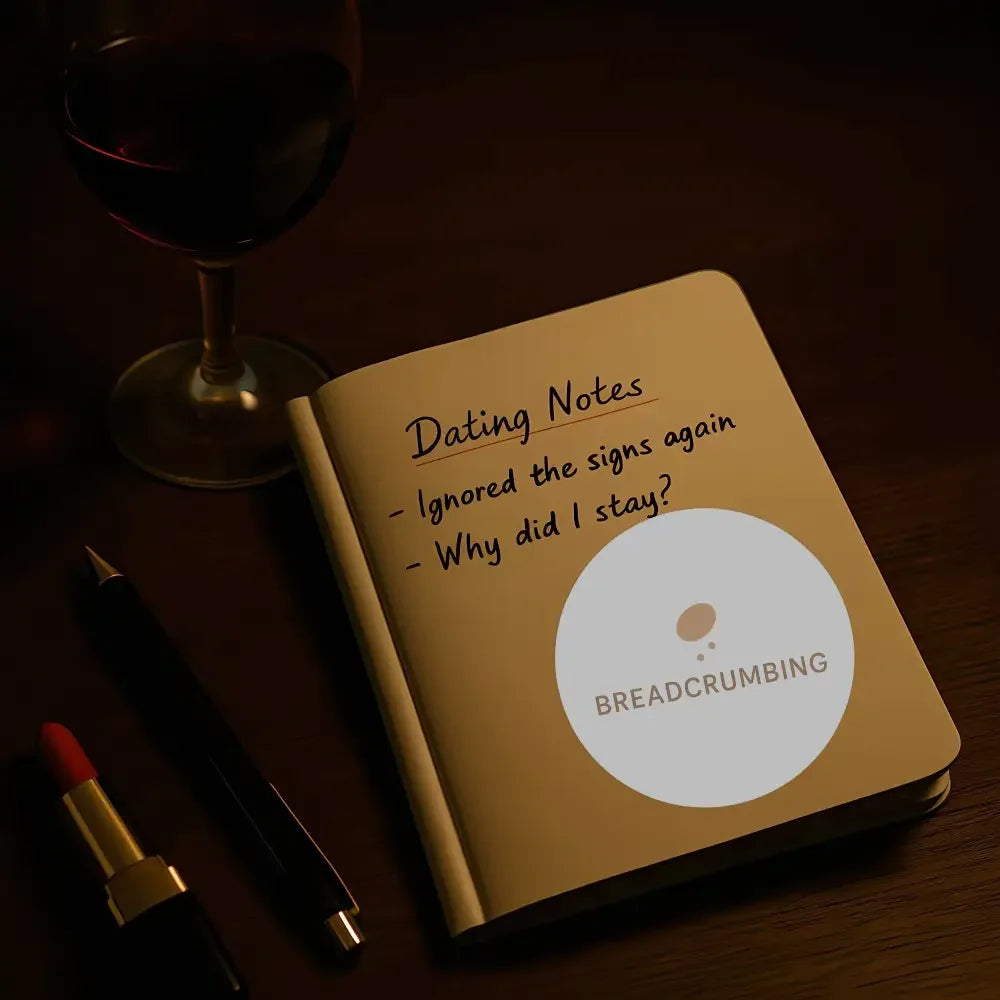 Dating Notes
- Ignored the signs again
- Why did I stay?
BREADCRUMBING